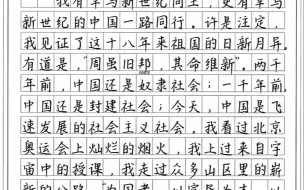 我有幸与新世纪同生，更有幸与
新世纪的中国一路同行。许是注定，
我见证了这十八年来祖国的日新月异。
有道是，“周虽旧邦，其命维新”。两千
年前，中国还是奴隶社会；一千年前，
中国还是封建社会；今天，中国是飞
速发展的社会主义社会。我看过北京
奥运会上灿烂的烟火，我上过来自宇
宙中的授课，我走过众多山区里的崭
新的公路。